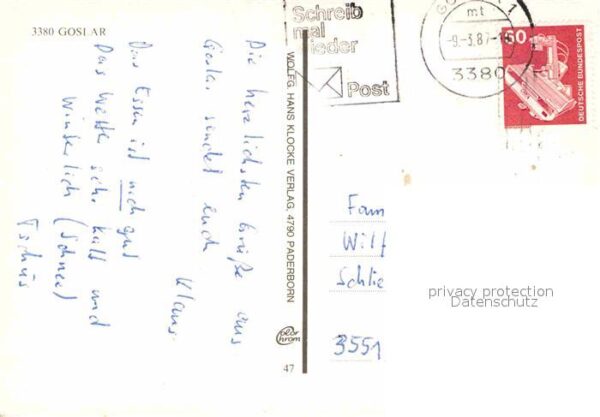 3380 GOSLAR
Die herzlichsten Grüße aus
Goslar sendet euch
Klaus.
Das Essen ist noch gut
Das Wetter sehr kalt und
winterlich (Schnee)
Tschüs
WOLFG. HANS KLOCKE VERLAG, 4790 PADERBORN
colorchrom
47
Schreib
mal
wieder
Post
GOSLAR 1
mt
-9.-3.87-16
3380
60
DEUTSCHE BUNDESPOST
Fam
Wilf
Schlie
3551
privacy protection
Datenschutz